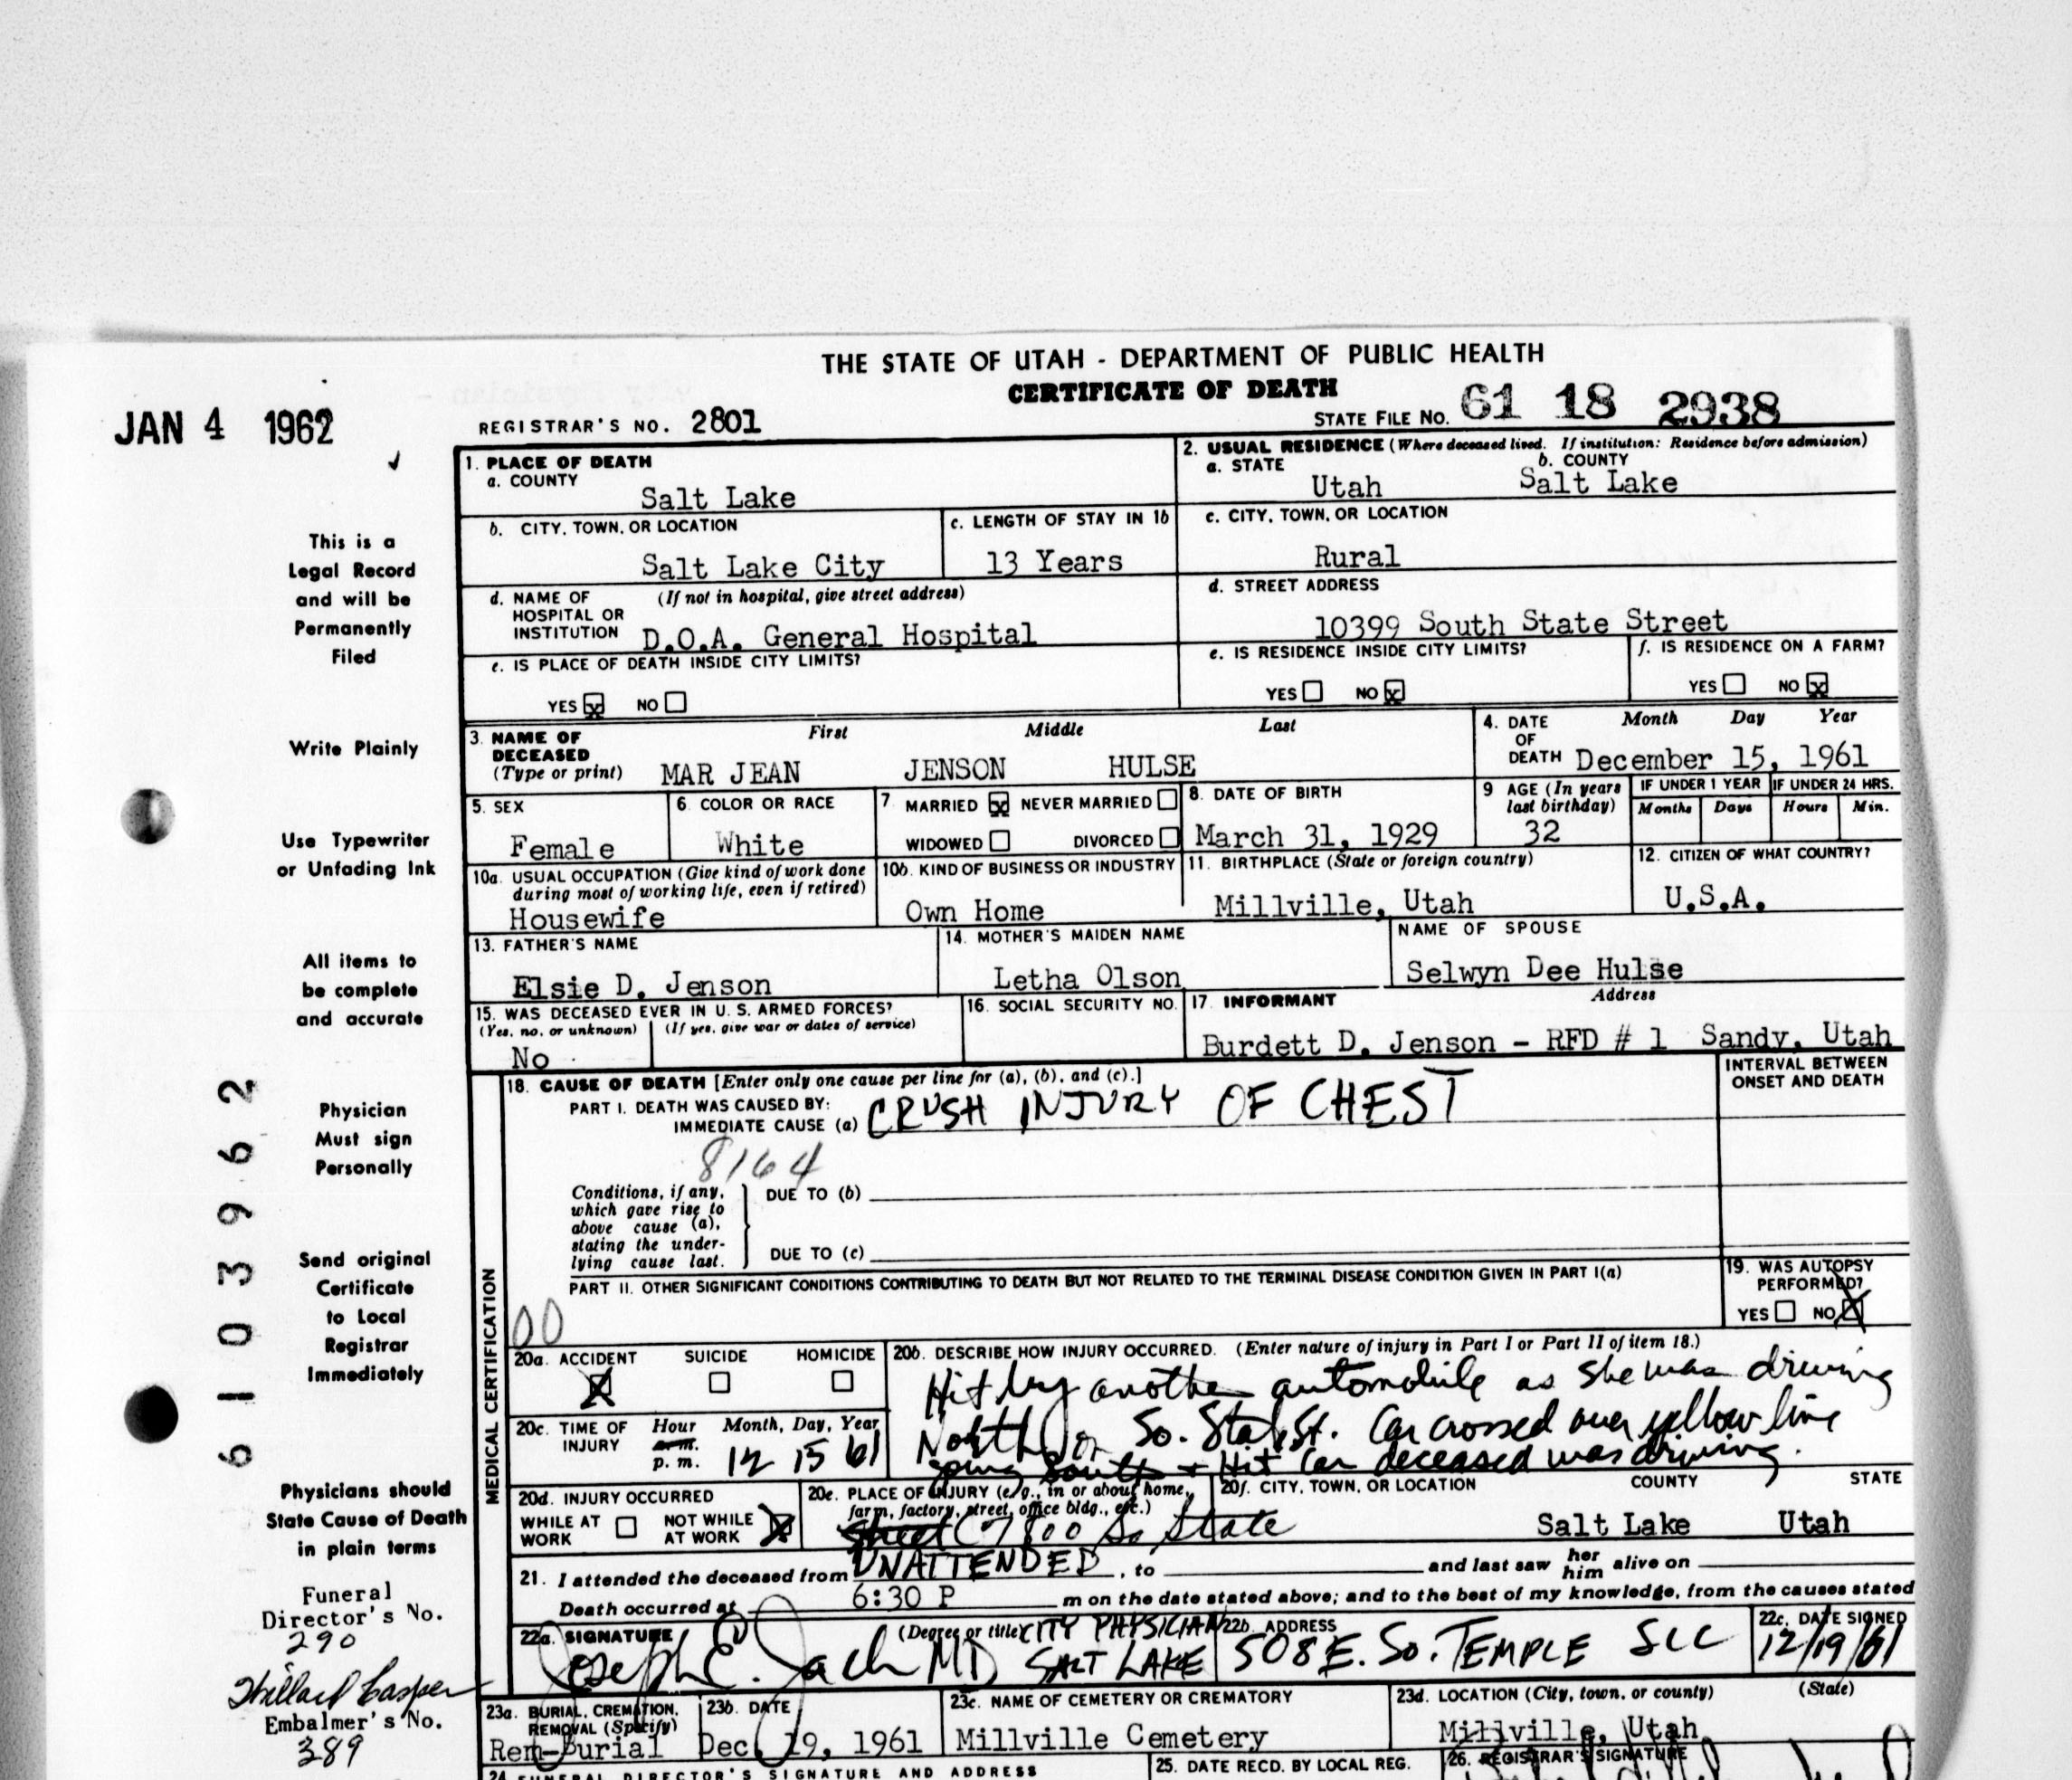 THE STATE OF UTAH - DEPARTMENT OF PUBLIC HEALTH
CERTIFICATE OF DEATH
JAN 4 1962
REGISTRAR'S NO. 2801
STATE FILE NO. 61 18 2938
1. PLACE OF DEATH
a. COUNTY
Salt Lake
2. USUAL RESIDENCE (Where deceased lived. If institution: Residence before admission)
a. STATE b. COUNTY
Utah Salt Lake
b. CITY, TOWN, OR LOCATION
Salt Lake City
c. LENGTH OF STAY IN 1b
13 Years
c. CITY, TOWN, OR LOCATION
Rural
d. NAME OF HOSPITAL OR INSTITUTION (If not in hospital, give street address)
D.O.A. General Hospital
d. STREET ADDRESS
10399 South State Street
e. IS PLACE OF DEATH INSIDE CITY LIMITS?
YES x NO
e. IS RESIDENCE INSIDE CITY LIMITS?
YES NO x
f. IS RESIDENCE ON A FARM?
YES NO x
3. NAME OF DECEASED (Type or print)
First Middle Last
MAR JEAN JENSON HULSE
4. DATE OF DEATH Month Day Year
December 15, 1961
5. SEX
Female
6. COLOR OR RACE
White
7. MARRIED x NEVER MARRIED
WIDOWED DIVORCED
8. DATE OF BIRTH
March 31, 1929
9 AGE (In years last birthday)
32
IF UNDER 1 YEAR IF UNDER 24 HRS.
Months Days Hours Min.
10a. USUAL OCCUPATION (Give kind of work done during most of working life, even if retired)
Housewife
10b. KIND OF BUSINESS OR INDUSTRY
Own Home
11. BIRTHPLACE (State or foreign country)
Millville, Utah
12. CITIZEN OF WHAT COUNTRY?
U.S.A.
13. FATHER'S NAME
Elsie D. Jenson
14. MOTHER'S MAIDEN NAME
Letha Olson
NAME OF SPOUSE
Selwyn Dee Hulse
15. WAS DECEASED EVER IN U. S. ARMED FORCES?
(Yes, no, or unknown) (If yes, give war or dates of service)
No
16. SOCIAL SECURITY NO.
17. INFORMANT Address
Burdett D. Jenson - RFD # 1 Sandy, Utah
MEDICAL CERTIFICATION
18. CAUSE OF DEATH [Enter only one cause per line for (a), (b), and (c).]
PART I. DEATH WAS CAUSED BY:
IMMEDIATE CAUSE (a) CRUSH INJURY OF CHEST
INTERVAL BETWEEN ONSET AND DEATH
8164
Conditions, if any, which gave rise to above cause (a), stating the underlying cause last.
DUE TO (b)
DUE TO (c)
PART II. OTHER SIGNIFICANT CONDITIONS CONTRIBUTING TO DEATH BUT NOT RELATED TO THE TERMINAL DISEASE CONDITION GIVEN IN PART I(a)
00
19. WAS AUTOPSY PERFORMED?
YES NO X
20a. ACCIDENT X SUICIDE HOMICIDE
20b. DESCRIBE HOW INJURY OCCURRED. (Enter nature of injury in Part I or Part II of item 18.)
Hit by another automobile as she was driving
North on So. State St. Car crossed over yellow line
going South + Hit car deceased was driving.
20c. TIME OF INJURY Hour Month, Day, Year
a. m.
p. m. 12 15 61
20d. INJURY OCCURRED
WHILE AT WORK NOT WHILE AT WORK X
20e. PLACE OF INJURY (e. g., in or about home, farm, factory, street, office bldg., etc.)
Street 7800 So State
20f. CITY, TOWN, OR LOCATION COUNTY STATE
Salt Lake Utah
21. I attended the deceased from UNATTENDED, to and last saw her him alive on
Death occurred at 6:30 P m on the date stated above; and to the best of my knowledge, from the causes stated
22a. SIGNATURE (Degree or title)
Joseph E. Jack MD CITY PHYSICIAN SALT LAKE
22b. ADDRESS
508 E. So. TEMPLE SLC
22c. DATE SIGNED
12/19/61
23a. BURIAL, CREMATION, REMOVAL (Specify)
Rem-Burial
23b. DATE
Dec. 19, 1961
23c. NAME OF CEMETERY OR CREMATORY
Millville Cemetery
23d. LOCATION (City, town, or county) (State)
Millville, Utah
24 FUNERAL DIRECTOR'S SIGNATURE AND ADDRESS
25. DATE RECD. BY LOCAL REG.
26. REGISTRAR'S SIGNATURE
This is a
Legal Record
and will be
Permanently
Filed
Write Plainly
Use Typewriter
or Unfading Ink
All items to
be complete
and accurate
Physician
Must sign
Personally
Send original
Certificate
to Local
Registrar
Immediately
Physicians should
State Cause of Death
in plain terms
Funeral
Director's No.
290
Willard Casper
Embalmer's No.
389
6103962